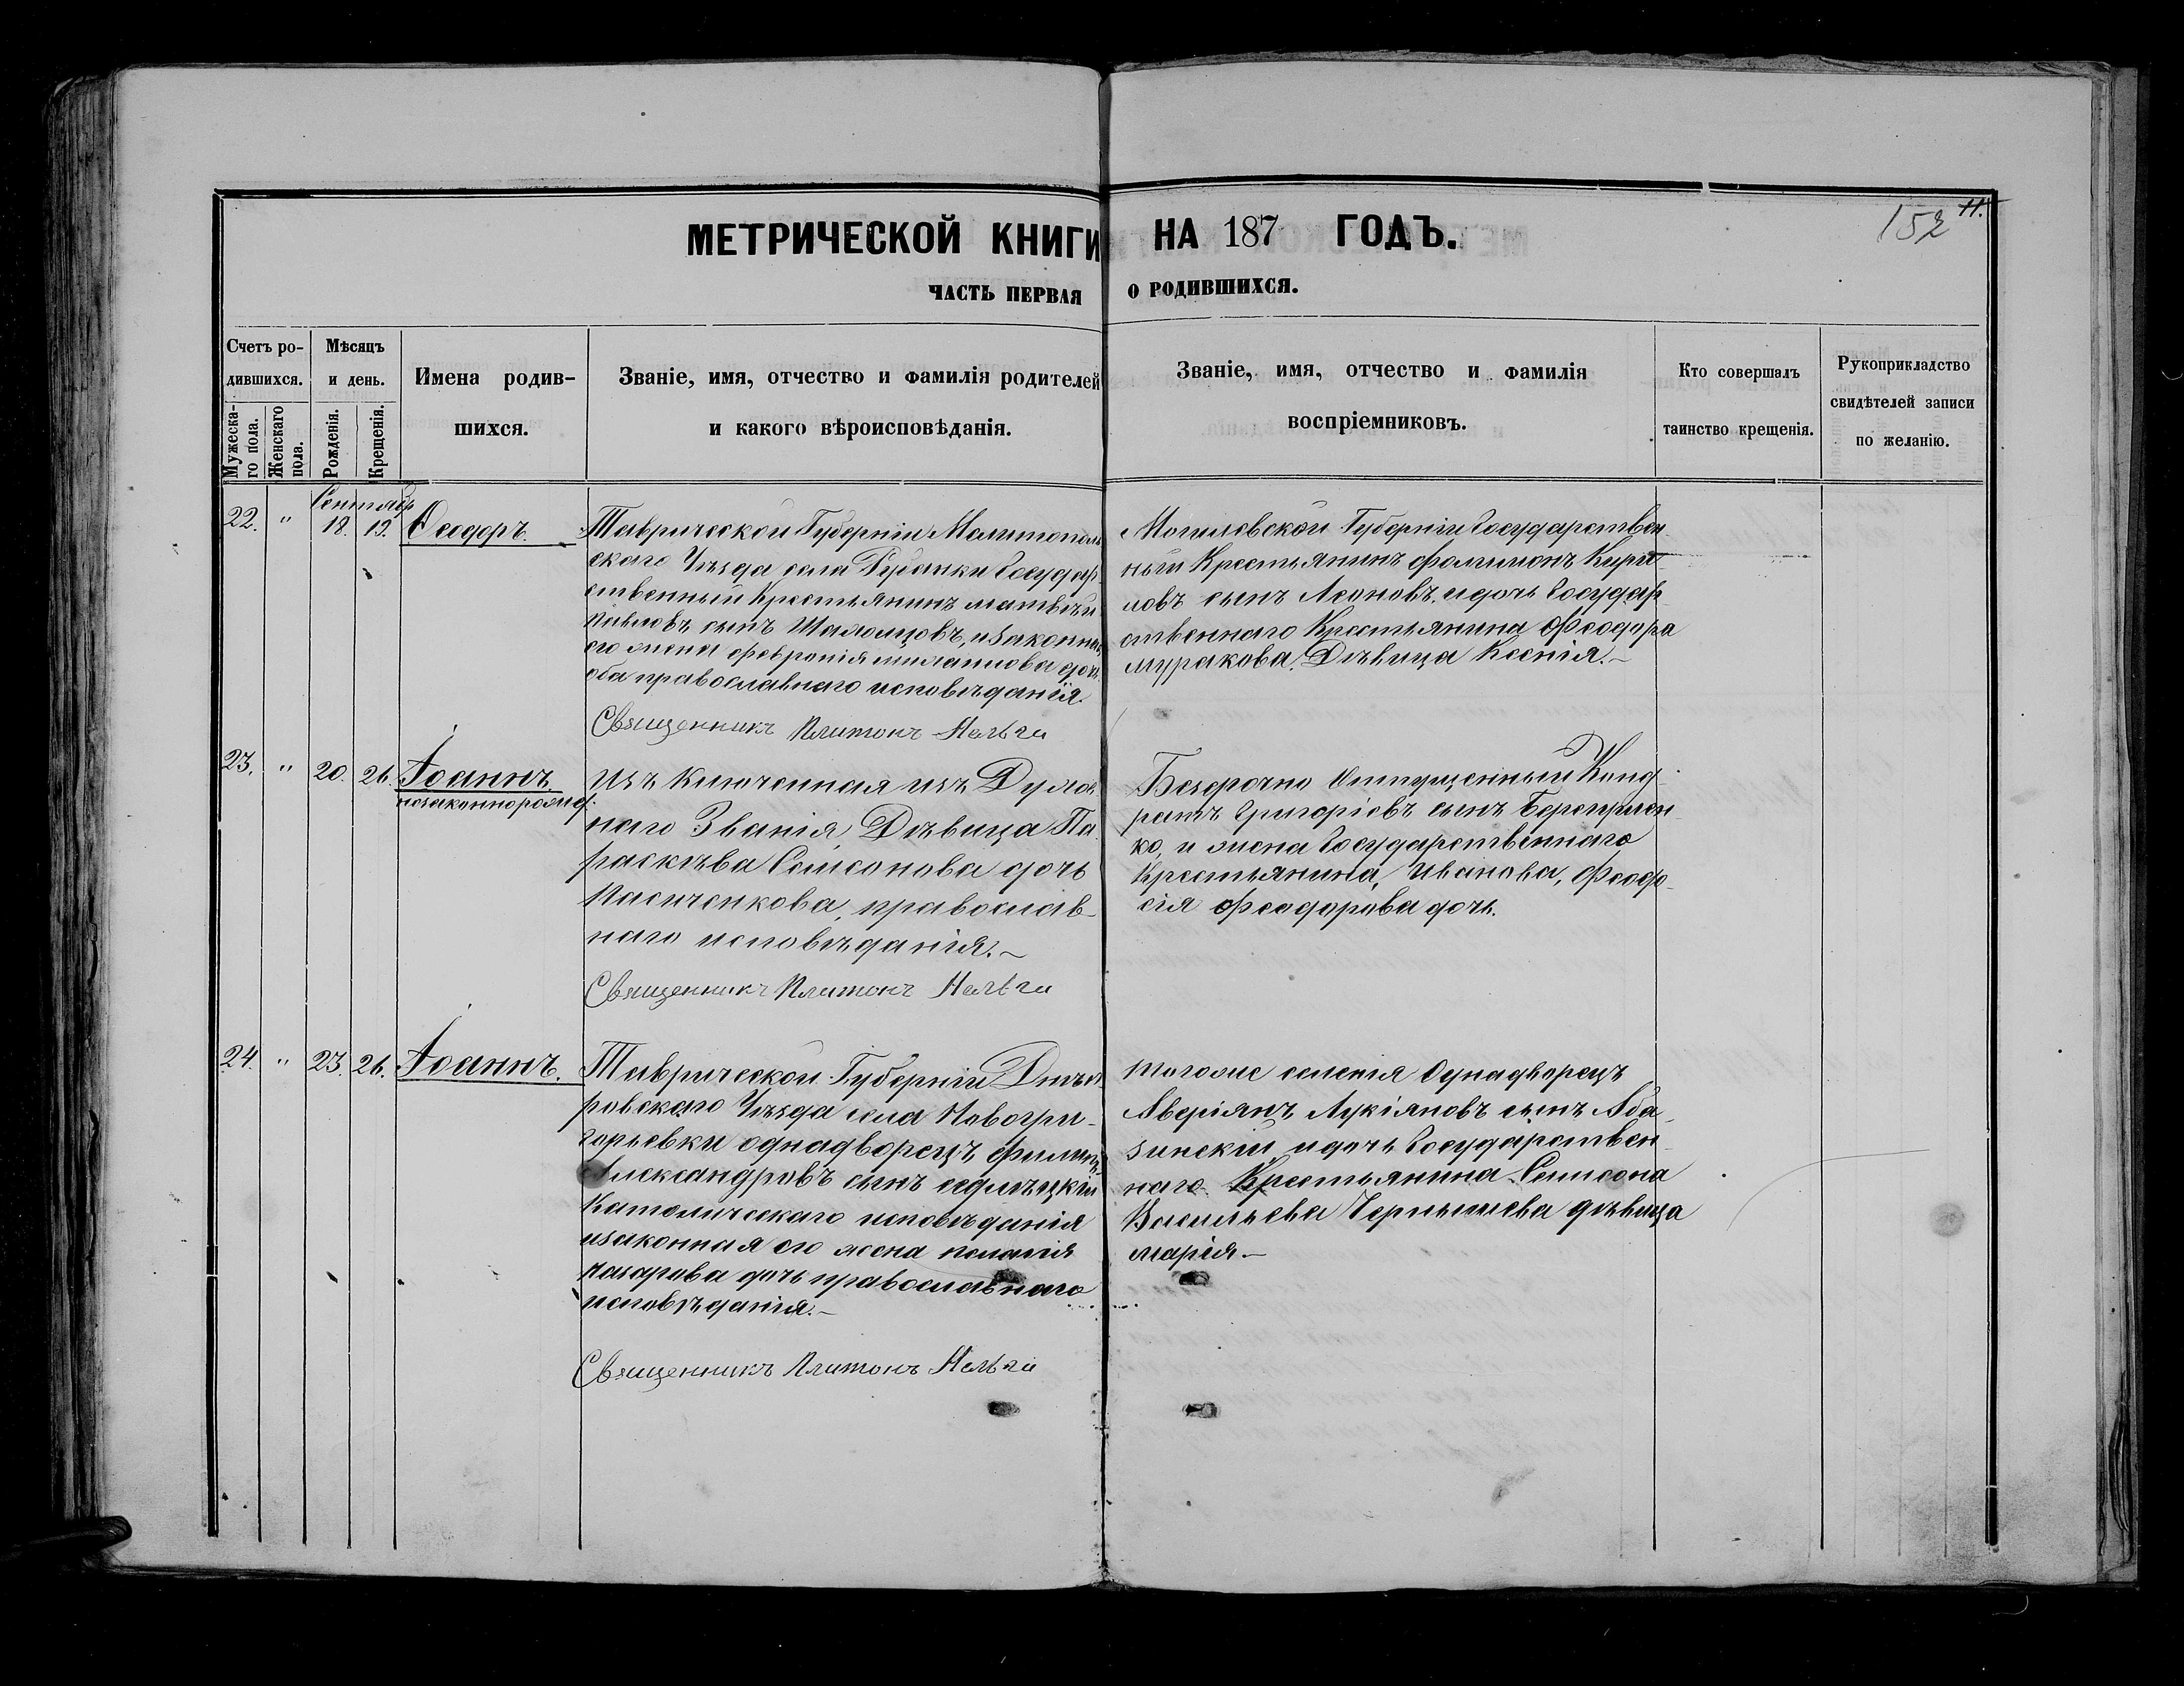 МЕТРИЧЕСКОЙ КНИГИ НА 187 ГОДЪ.
152 11.
ЧАСТЬ ПЕРВАЯ О РОДИВШИХСЯ.
Счетъ родившихся.
Мужескаго пола.
Женскаго пола.
Мѣсяцъ и день.
Рожденія.
Крещенія.
Имена родившихся.
Званіе, имя, отчество и фамилія родителей
и какого вѣроисповѣданія.
Званіе, имя, отчество и фамилія
воспріемниковъ.
Кто совершалъ
таинство крещенія.
Рукоприкладство
свидѣтелей записи
по желанію.
Сентябр
22. " 18. 19. Ѳеодоръ.
Таврической Губерніи Мелитополь
скаго Уѣзда села Рубанки Государ
ственный Крестьянинъ Матвѣй
Павловъ сынъ Шаломцовъ, изаконная
его жена Февронія дочь
оба православнаго исповѣданія.
Священникъ Платонъ
Могилевской Губерніи Государствен
ный Крестьянинъ Филимонъ Кири
ловъ сынъ Леоновъ, идочь Государ
ственнаго Крестьянина Феодора
муракова, Дѣвица Ксенія.
23. " 20. 26. Іоаннъ.
незаконнорожд.
Изъ Ключенная изъ Духов
наго Званія, Дѣвица Па
раскѣва Самсонова дочь
Пасиченкова, православ-
наго исповѣданія.
Священникъ Платонъ
Безсрочно Отпущенный Конд
ратъ Григоріевъ сынъ
ко, и жена Государственнаго
Крестьянина, Иванова, Феодо-
сія Феодорова дочь.
24. " 23. 26. Іоаннъ.
Таврической Губерніи Днѣп
ровскаго Уѣзда села Новогри-
горьевки однадворецъ Филипъ
Александровъ сынъ седлецкій
Католическаго исповѣданія
изаконная его жена пелагія
Назарова дочь православнаго
исповѣданія.
Священникъ Платонъ
тогоже селенія Однадворецъ
Аверіянъ Лукіяновъ сынъ Аба-
зинскій идочь Государствен
наго Крестьянина Самсона
Васильева Чернышева дѣвица
марія.